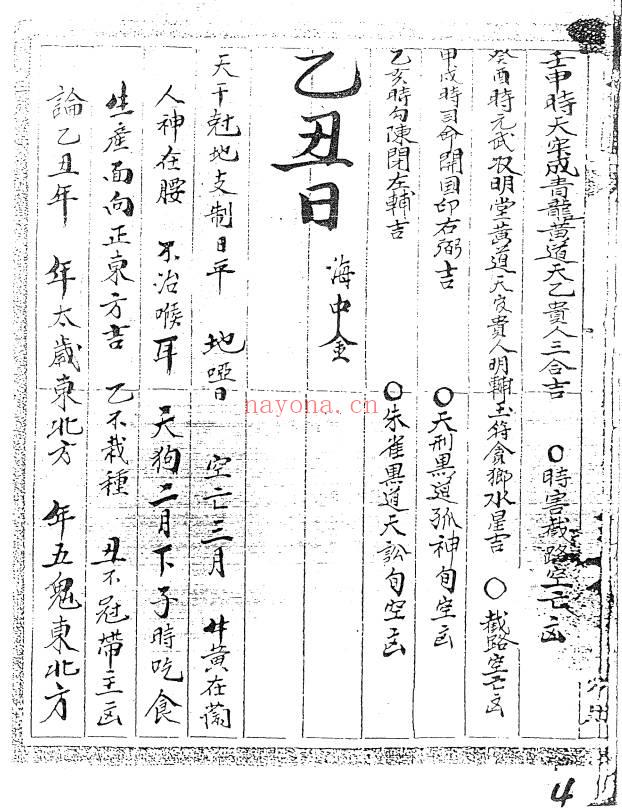 壬申時天牢成青龍黃道天乙貴人三合吉 〇時害截路空亡凶
癸酉時元武收明堂黃道天官貴人明輔玉符食鄉水星吉 〇截路空亡凶
甲戌時司命開國印右弼吉 〇天刑黑道孤神旬空凶
乙亥時勾陳閉左輔吉 〇朱雀黑道天訟旬空凶
乙丑日 海中金
天干尅地支制日平 地啞日 空亡三月 廿黃在
人神在腰 不治喉耳 天狗二月下子時吃食
生產面向正東方吉 乙不栽種 丑不冠帶主凶
論乙丑年 年太歲東北方 年五鬼東北方
nayona.cn
4